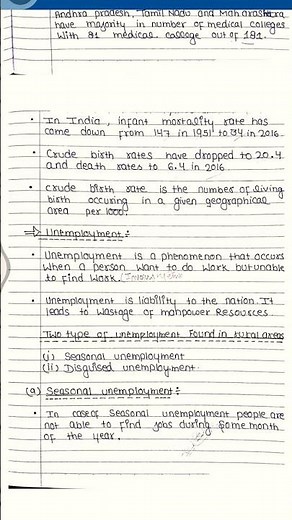 Andhra pradesh, Tamil Nadu and Maharashtra
have majority in number of medical colleges
with 81 medical college out of 181.
• In India, infant mortality rate has
come down from 147 in 1951 to 34 in 2016.
• Crude birth rates have dropped to 20.4
and death rates to 6.4 in 2016.
• Crude birth rate is the number of living
birth occuring in a given geographical
area per 1000.
⇒ Unemployment:-
• Unemployment is a phenomenon that occurs
when a person want to do work but unable
to find work.
• Unemployment is liability to the nation. It
leads to wastage of manpower Resources.
Two type of unemployment Found in rural areas
(i) Seasonal unemployment
(ii) Disguised unemployment.
(a) Seasonal unemployment:-
• In case of Seasonal unemployment people are
not able to find jobs during some month
of the year.